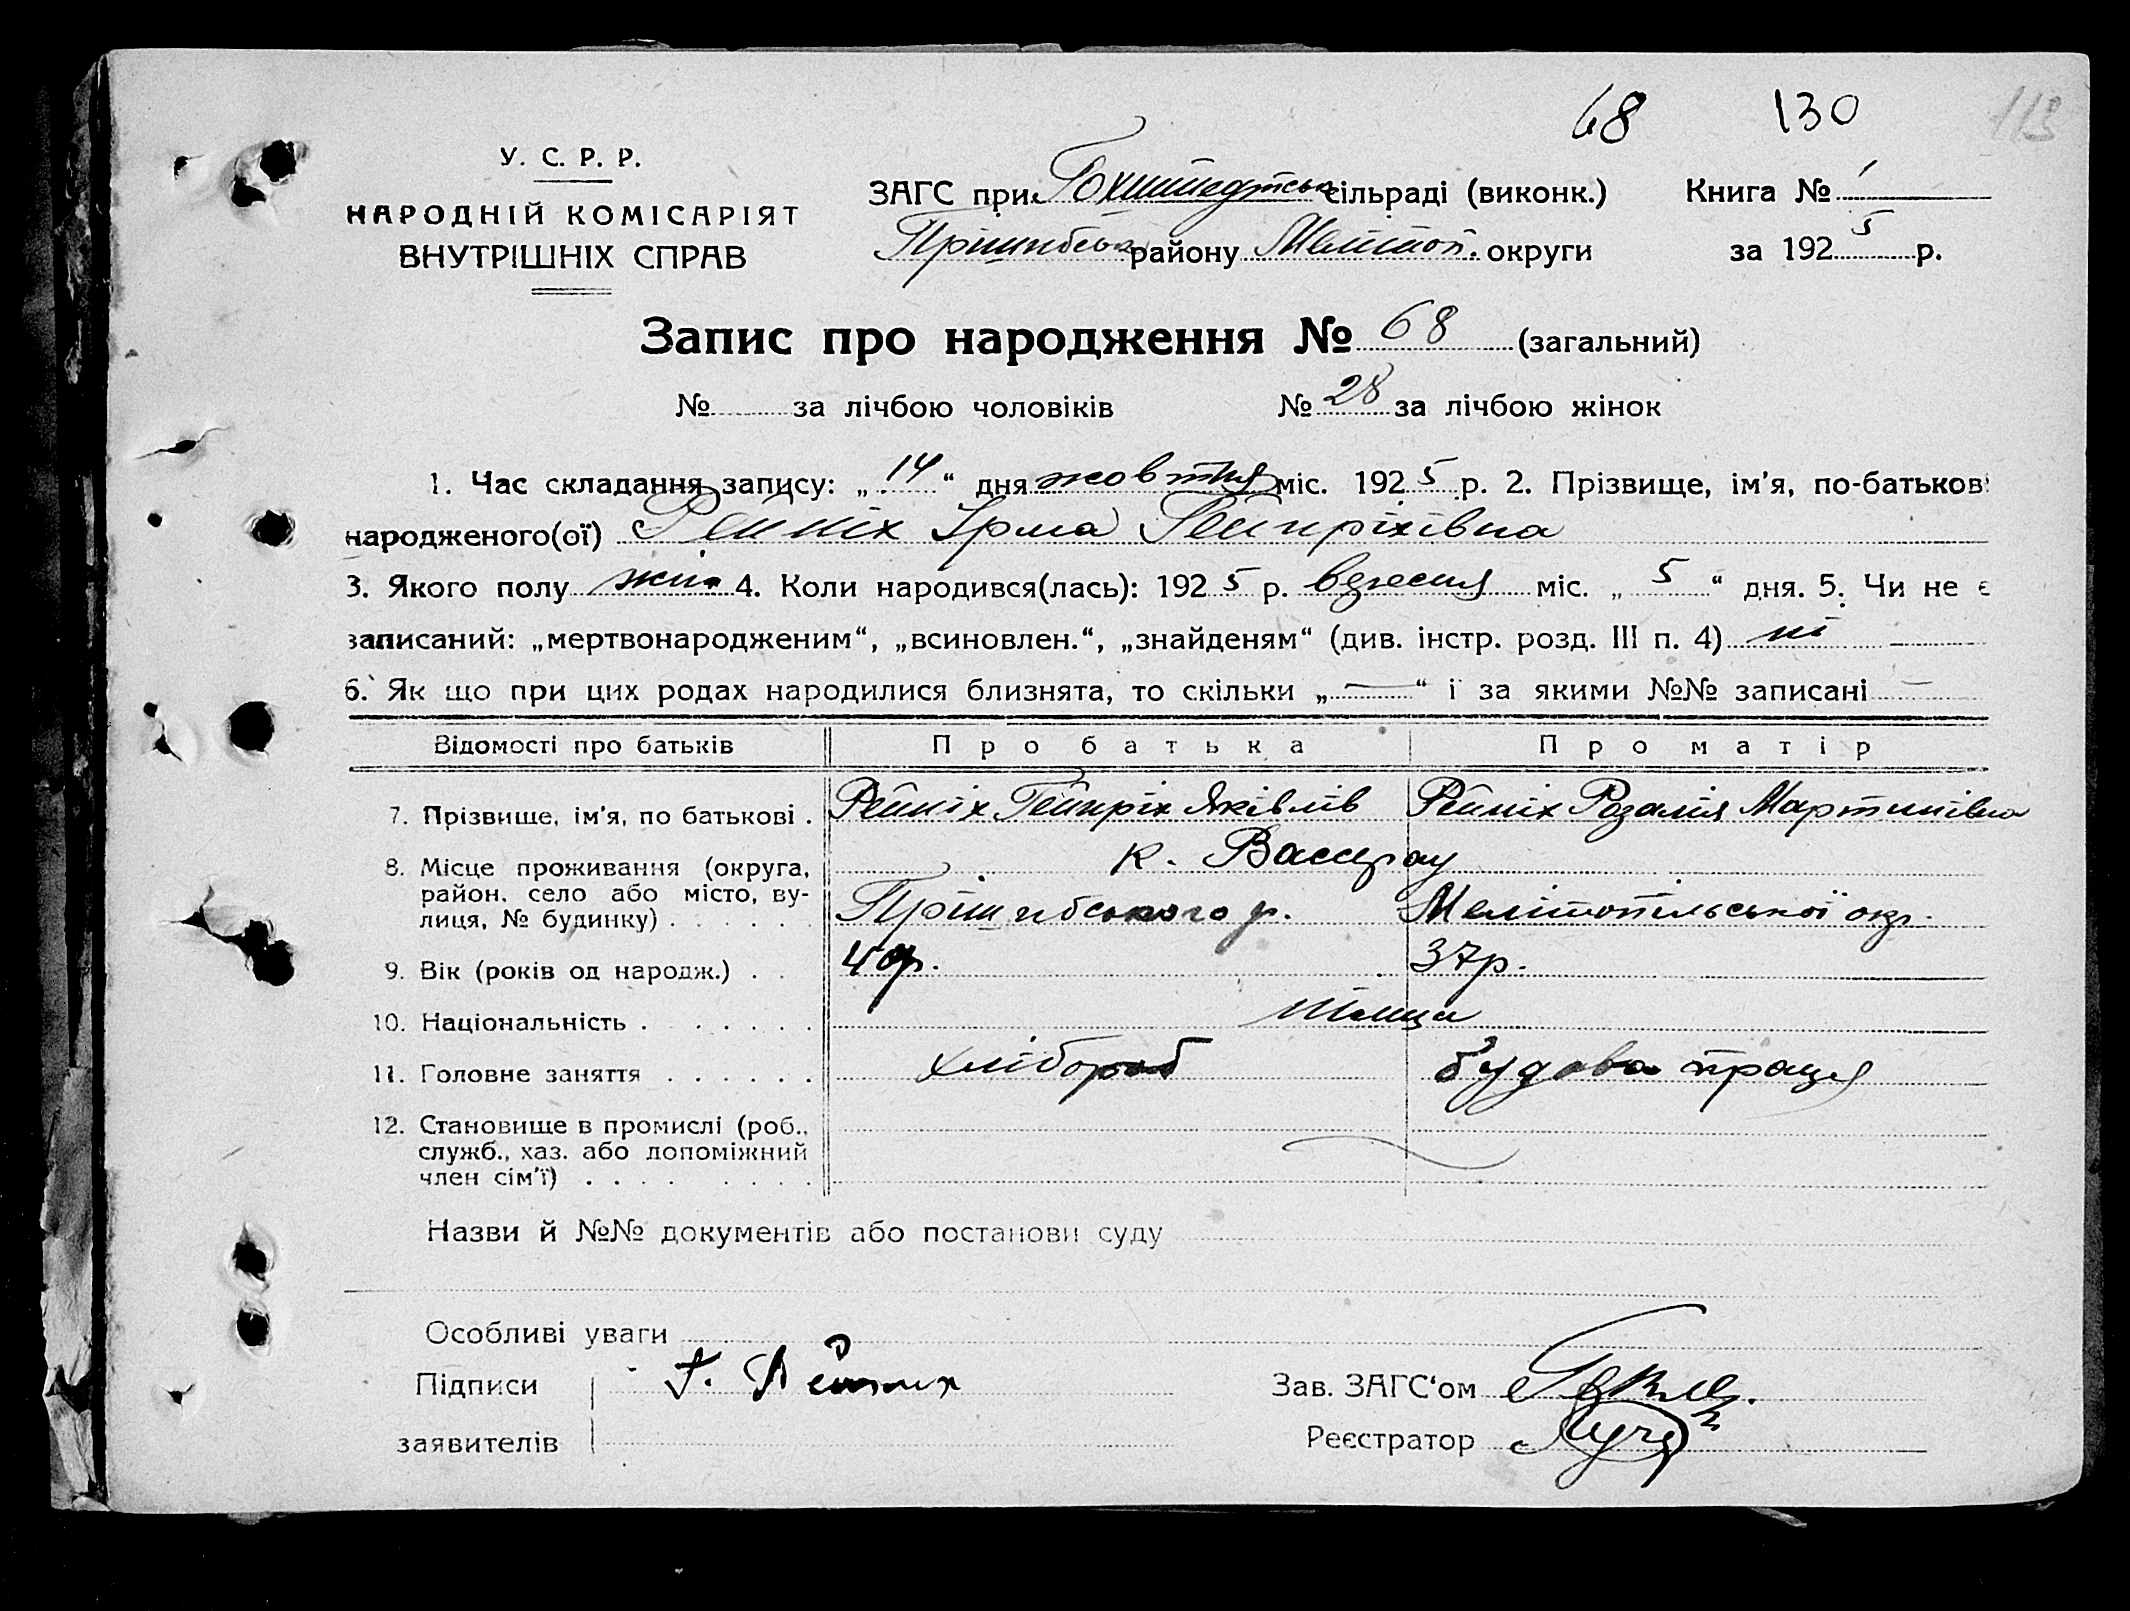 68 130 113
У. С. Р. Р.
НАРОДНІЙ КОМІСАРІЯТ
ВНУТРІШНІХ СПРАВ
ЗАГС при Гохштедтськ сільраді (виконк.) Книга № 1
Прішибськ району Меліто п. округи за 1925 р.
Запис про народження № 68 (загальний)
№ за лічбою чоловіків № 28 за лічбою жінок
1. Час складання запису: „14“ дня жовтня міс. 1925 р. 2. Прізвище, ім'я, по-батькові
народженого(ої) Рейміх Ірма Гейнріхівна
3. Якого полу жін. 4. Коли народився(лась): 1925 р. вересня міс. „5“ дня. 5. Чи не є
записаний: „мертвонародженим“, „всиновлен.“, „знайденям“ (див. інстр. розд. III п. 4) ні
6. Як що при цих родах народилися близнята, то скільки „—“ і за якими №№ записані —
Відомості про батьків Про батька Про матір
7. Прізвище, ім'я, по батькові . Рейміх Гейнріх Яківлів Рейміх Розалія Мартинівна
8. Місце проживання (округа, к. Вассерау
район, село або місто, ву-
лиця, № будинку) . . . . . Прішибського р. Мелітопільської окр.
9. Вік (років од народж.) . . 40р. 37р.
10. Національність . . . . . . німци
11. Головне заняття . . . . . . хлібороб будова праця
12. Становище в промислі (роб.,
служб., хаз. або допоміжний
член сім'ї) . . . . . . . .
Назви й №№ документів або постанови суду
Особливі уваги
Підписи Зав. ЗАГС'ом
заявителів Реєстратор